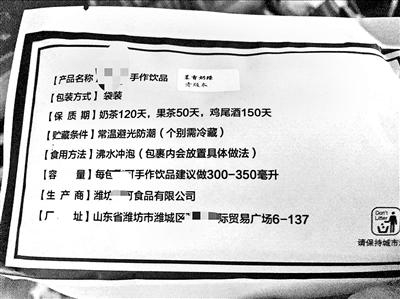 【产品名称 手作饮品
【包装方式】袋装
【保 质 期】奶茶120天，果茶50天，鸡尾酒150天
【贮藏条件】常温避光防潮（个别需冷藏）
【食用方法】沸水冲泡（包裹内会放置具体做法）
【容 量】每包 可手作饮品建议做300-350毫升
【生 产 商】潍坊 可食品有限公司
【厂 址】山东省潍坊市潍城区 际贸易广场6-137
Don't Litter
请保持城市